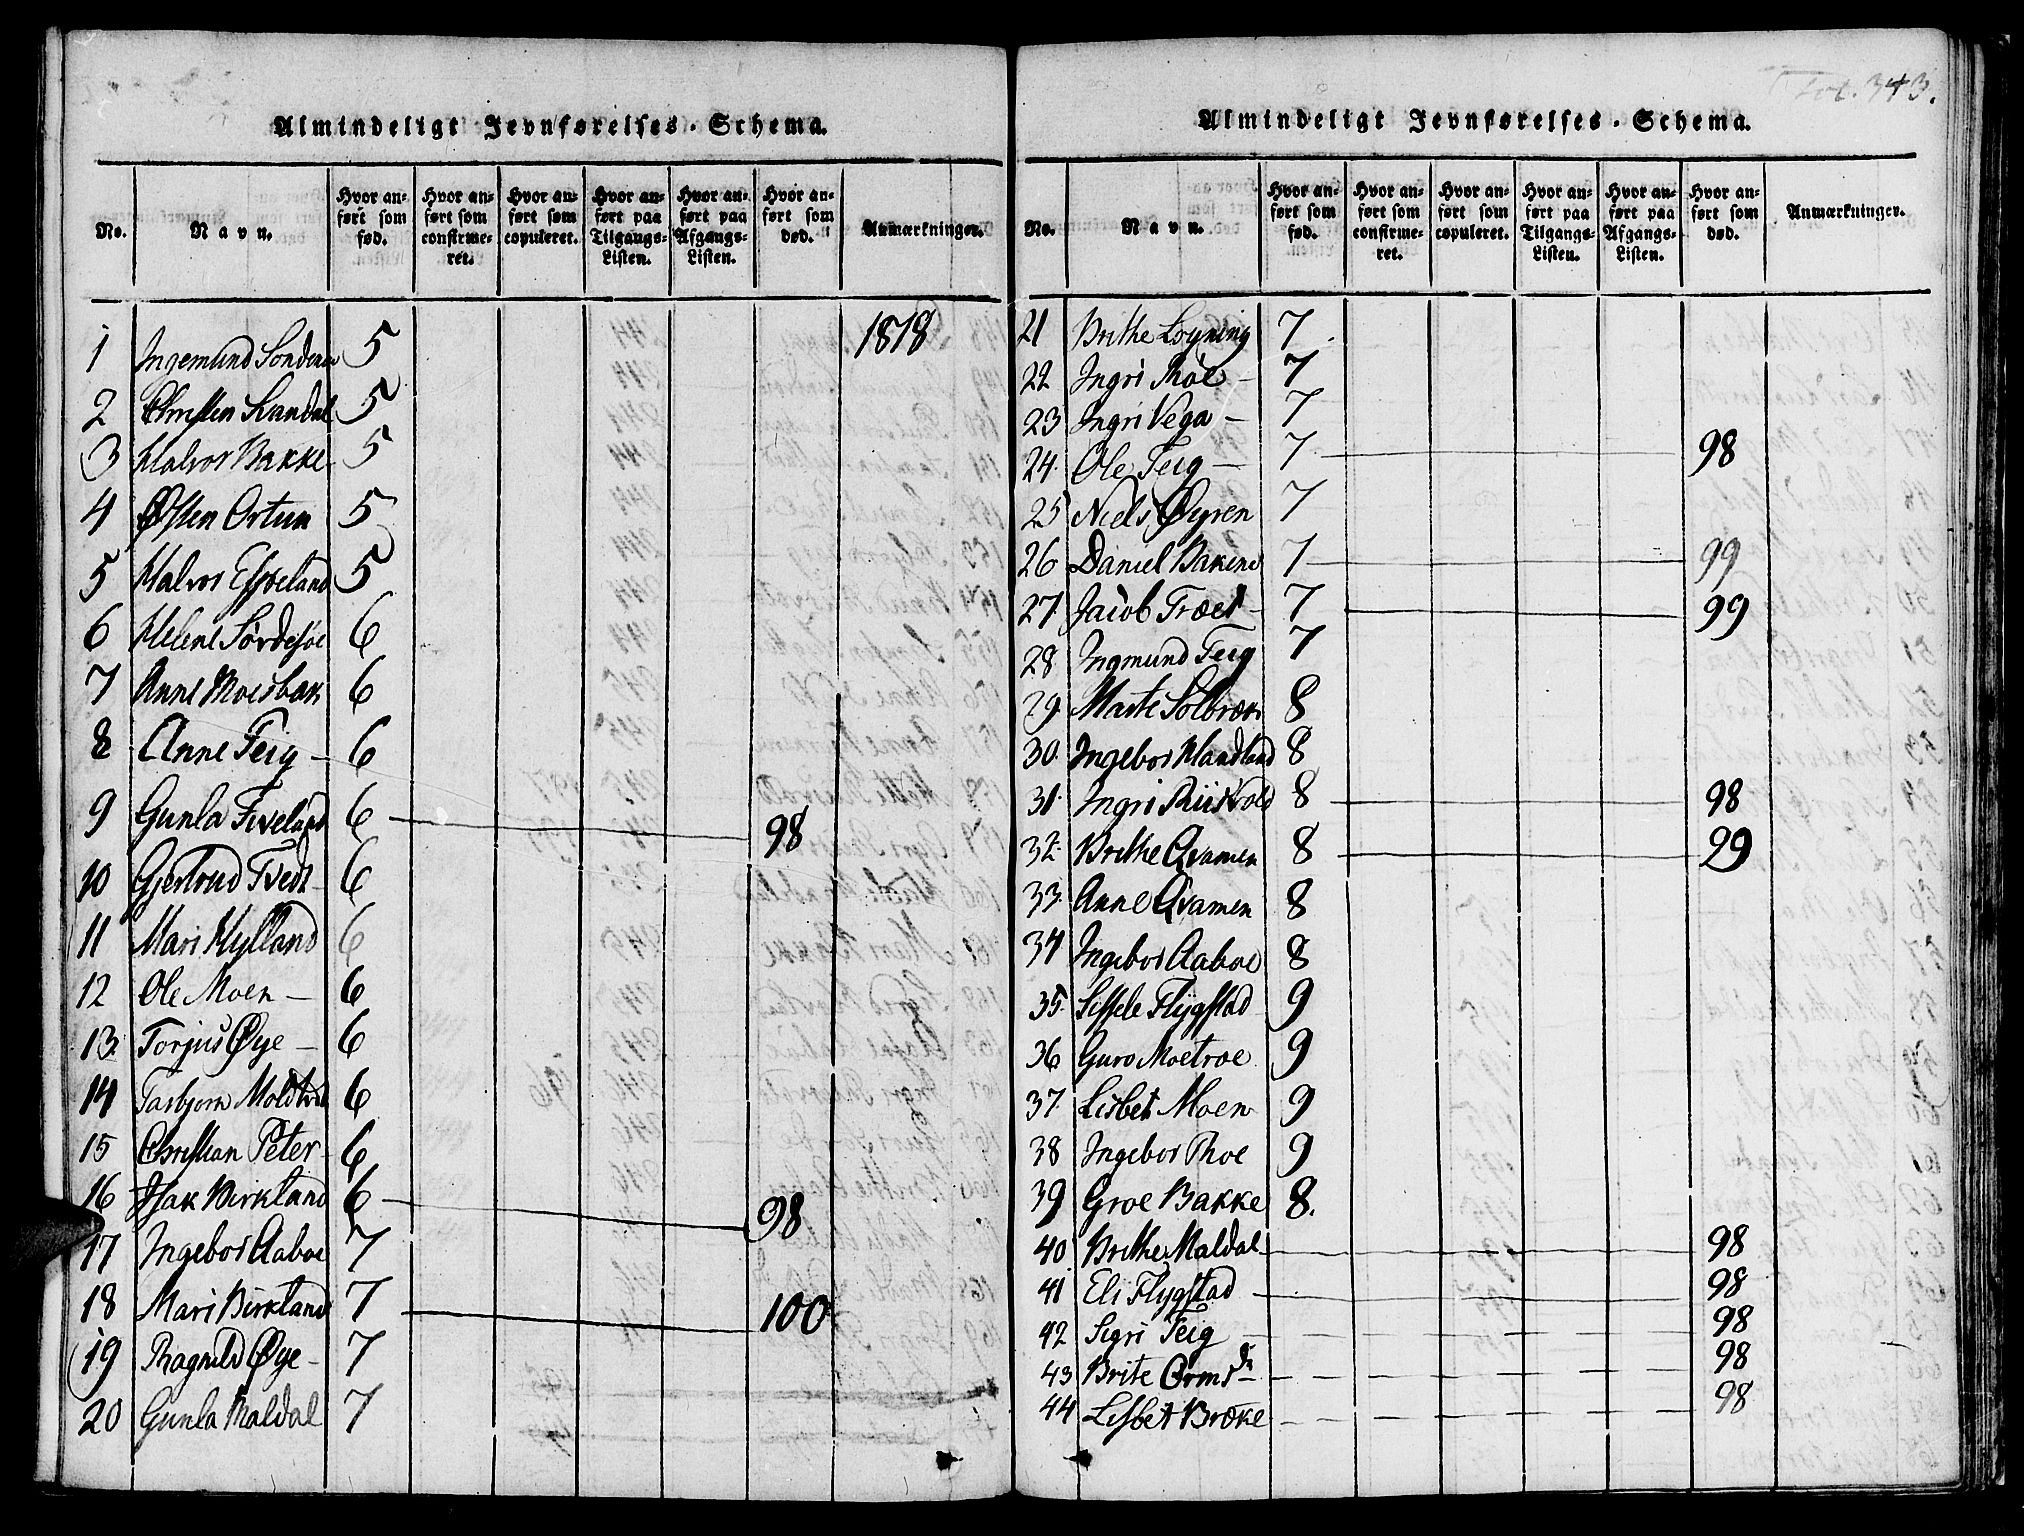 Almindeligt Jevnførelses-Schema.
No. Navn. Hvor anført som fød. Hvor anført som confirmeret. Hvor anført som copuleret. Hvor anført paa Tilgangs-Listen. Hvor anført paa Afgangs-Listen. Hvor anført som død. Anmærkninger.
1 Ingemund 5 1818
2 Christen 5
3 Halvor Bakke 5
4 Østen Ortun 5
5 Halvor Espeland 5
6 Helene 6
7 Anne Moesbak 6
8 Anne Feig 6
9 Gunla Fiveland 6 98
10 Gjertrud Tvedt 6
11 Mari Hylland 6
12 Ole Moen 6
13 Torjus Øye 6
14 Tarbjørn 6
15 Christian Peter 6
16 Isak Birkland 6 98
17 Ingebor Aaboe 7
18 Mari Birkland 7 100
19 Ragnild Øye 7
20 Gunla Maldal 7
Fol. 343.
Almindeligt Jevnførelses-Schema.
No. Navn. Hvor anført som fød. Hvor anført som confirmeret. Hvor anført som copuleret. Hvor anført paa Tilgangs-Listen. Hvor anført paa Afgangs-Listen. Hvor anført som død. Anmærkninger.
21 Brithe Løyning 7
22 Ingri Roe 7
23 Ingri Vega 7
24 Ole Feig 7 98
25 Niels Øyren 7
26 Daniel Bakene 7 99
27 Jacob Træet 7 99
28 Ingmund Feig 7
29 Marte Solbræk 8
30 Ingebor Handland 8
31 Ingri Riisvold 8 98
32 Brithe Qvamen 8 99
33 Anne Qvamen 8
34 Ingebor Aaboe 8
35 Sissele Flygstad 9
36 Guro Moetroe 9
37 Lisbet Moen 9
38 Ingebor Roe 9
39 Groe Bakke 8.
40 Brithe Maldal 98
41 Eli Flygstad 98
42 Sigri Feig 98
43 Brite Ormsdr 98
44 Lisbet Bræke 98